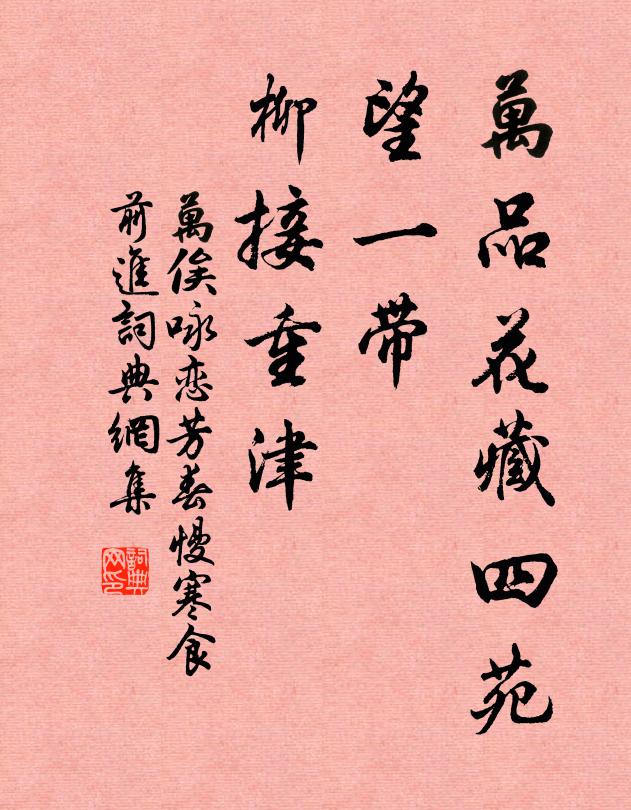 萬品花藏四苑
望一带
柳接重津
萬俟咏恋芳春慢寒食
前進詞典網集
詞典
网印